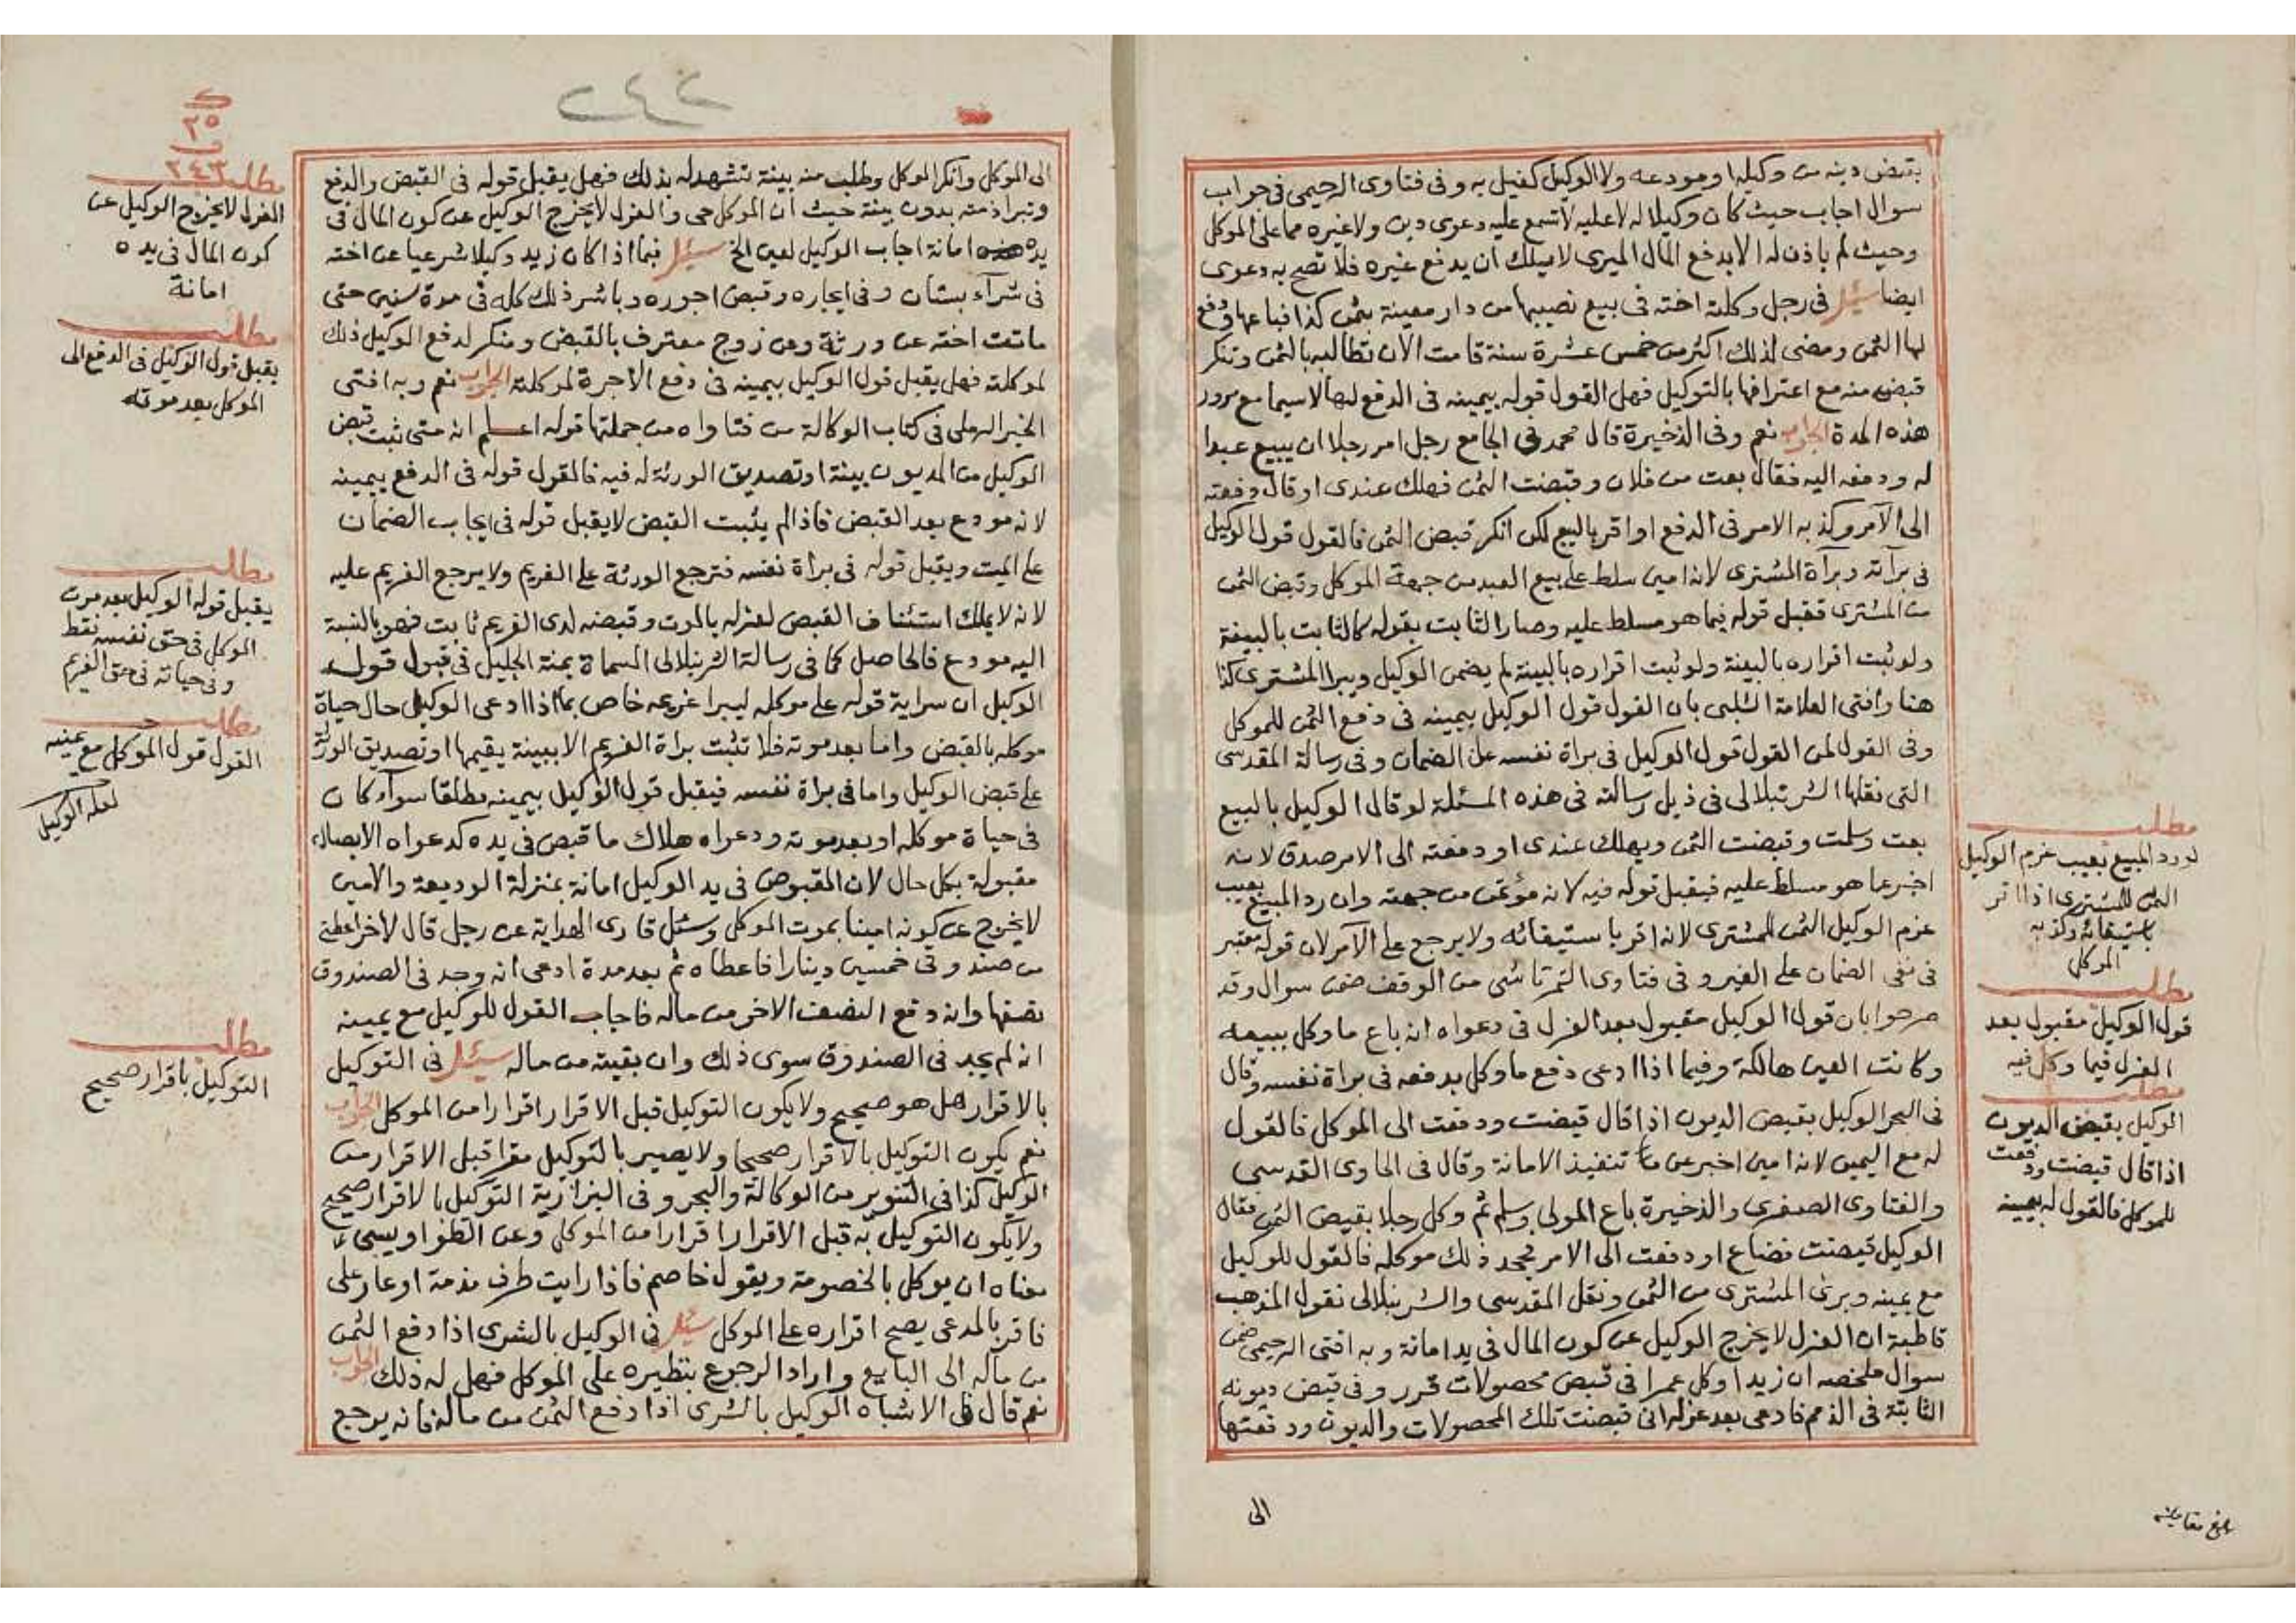 بقبض دينه من وكيله او مودعه ولا الوكيل كفيل به وفى فتاوى الرحيمى فى جواب
سوال اجاب حيث كان وكيلا له لا عليه لا تسمع عليه دعوى دين ولا غيره مما على الموكل
وحيث لم ياذن له الا بدفع المال الميرى لا يملك ان يدفع غيره فلا تصح به دعوى
ايضا سئل فى رجل وكلته اخته فى بيع نصيبها من دار معينة بثمن كذا فباعها ودفع
لها الثمن ومضى لذلك اكثر من خمس عشرة سنة قامت الان تطالبه بالثمن وتنكر
قبضه منه مع اعترافها بالتوكيل فهل القول قوله بيمينه فى الدفع لها لاسيما مع مرور
هذه المدة الجواب نعم وفى الذخيرة قال محمد فى الجامع رجل امر رجلا ان يبيع عبدا
له ودفعه اليه فقال بعت من فلان وقبضت الثمن فهلك عندى او قال دفعته
الى الآمر وكذبه الامر فى الدفع او اقر بالبيع لكن انكر قبض الثمن فالقول قول الوكيل
فى برآته وبرآة المشترى لانه امين سلط على بيع العبد من جهة الموكل وقبض الثمن
من المشترى فقبل قوله فيما هو مسلط عليه وصار الثابت بقوله كالثابت بالبينة
ولو ثبت اقراره بالبينة ولو ثبت اقراره بالبينة لم يضمن الوكيل ويبرا المشترى كذا
هنا وافتى العلامة الشلبى بان القول قول الوكيل بيمينه فى دفع الثمن للموكل
وفى القول لمن القول قول الوكيل فى براة نفسه عن الضمان وفى رسالة المقدسى
التى نقلها الشرنبلالى فى ذيل رسالته فى هذه المسئلة لو قال الوكيل بالبيع
بعت وسلمت وقبضت الثمن وهلك عندى او دفعته الى الامر صدق لانه
اخبر عما هو مسلط عليه فيقبل قوله فيه لانه مؤتمن من جهته وان رد المبيع بعيب
غرم الوكيل الثمن للمشترى لانه اقر باستيفائه ولا يرجع على الآمر لان قوله معتبر
فى نفى الضمان على الغير وفى فتاوى التمرتاشى من الوقف ضمن سوال وقد
صرحوا بان قول الوكيل مقبول بعد العزل فى دعواه انه باع ما وكل ببيعه
وكانت العين هالكة وفيما اذا ادعى دفع ما وكل بدفعه فى براة نفسه وقال
فى البحر الوكيل بقبض الديون اذا قال قبضت ودفعت الى الموكل فالقول
له مع اليمين لانه امين اخبر عن ما تنفيذ الامانة وقال فى الحاوى القدسى
والفتاوى الصغرى والذخيرة باع المولى وسلم ثم وكل رجلا بقبض الثمن فقال
الوكيل قبضت فضاع او دفعت الى الامر فجحد ذلك موكله فالقول للوكيل
مع يمينه وبرئ المشترى من الثمن ونقل المقدسى والشرنبلالى نقول المذهب
قاطبة ان العزل لا يخرج الوكيل عن كون المال فى يد امانة وبه افتى الرحيمى ضمن
سوال ملخصه ان زيدا وكل عمرا فى قبض محصولات قرر وفى قبض ديونه
الثابتة فى الذمم فادعى بعد عزله انى قبضت تلك المحصولات والديون ودفعتها
الى
مطلب
لو رد المبيع بعيب غرم الوكيل
الثمن للمشترى اذا اقر
باستيفائه وكذبه
الموكل
مطلب
قول الوكيل مقبول بعد
العزل فيما وكل فيه
مطلب
الوكيل بقبض الديون
اذا قال قبضت ودفعت
للموكل فالقول له بيمينه
بلغ مقابلة
٢٤٢
٢٥
٢٤٣
الى الموكل وانكر الموكل وطلب منه بينة تشهد له بذلك فهل يقبل قوله فى القبض والدفع
وتبرا ذمته بدون بينة حيث ان الموكل حى والعزل لا يخرج الوكيل عن كون المال فى
يده امانة اجاب الوكيل لعين الخ سئل فيما اذا كان زيد وكيلا شرعيا عن اخته
فى شرآء بستان وفى ايجاره وقبض اجوره وباشر ذلك كله فى مدة سنين حتى
ماتت اخته عن ورثة وعن زوج معترف بالقبض ومنكر لدفع الوكيل ذلك
لموكلته فهل يقبل قول الوكيل بيمينه فى دفع الاجرة لموكلته الجواب نعم وبه افتى
الخير الرملى فى كتاب الوكالة من فتاواه من جملتها قوله اعلم انه متى ثبت قبض
الوكيل من المديون ببينة او تصديق الورثة له فيه فالقول قوله فى الدفع بيمينه
لانه مودع بعد القبض فاذا لم يثبت القبض لا يقبل قوله فى ايجاب الضمان
على الميت ويقبل قوله فى براة نفسه فترجع الورثة على الغريم ولا يرجع الغريم عليه
لانه لا يملك استئناف القبض لعزله بالموت وقبضه لدى الغريم ثابت فهو بالنسبة
اليه مودع فالحاصل كما فى رسالة الشرنبلالى المسماة بمنة الجليل فى قبول قول
الوكيل ان سراية قوله على موكله ليبرا غريمه خاص بما اذا ادعى الوكيل حال حياة
موكله بالقبض واما بعد موته فلا تثبت براة الغريم الا ببينة يقيمها او تصديق الورثة
على قبض الوكيل واما فى براة نفسه فيقبل قول الوكيل بيمينه مطلقا سوآء كان
فى حياة موكله او بعد موته ودعواه هلاك ما قبض فى يده كدعواه الايصال
مقبولة بكل حال لان المقبوض فى يد الوكيل امانة بمنزلة الوديعة والامين
لا يخرج عن كونه امينا بموت الموكل وسئل قارى الهداية عن رجل قال لآخر اعطنى
من صندوقى خمسين دينارا فاعطاه ثم بعد مدة ادعى انه وجد فى الصندوق
نصفها وانه دفع النصف الاخر من ماله فاجاب القول للوكيل مع يمينه
انه لم يجد فى الصندوق سوى ذلك وان بقيته من ماله سئل فى التوكيل
بالاقرار هل هو صحيح ولا يكون التوكيل قبل الاقرار اقرارا من الموكل الجواب
نعم يكون التوكيل بالاقرار صحيحا ولا يصير بالتوكيل مقرا قبل الاقرار من
الوكيل كذا فى التنوير من الوكالة والبحر وفى البزازية التوكيل بالاقرار صحيح
ولا يكون التوكيل به قبل الاقرار اقرارا من الموكل وعن الطواويسى
معناه ان يوكل بالخصومة ويقول خاصم فاذا رايت طرف مذمة او عار على
فاقر بالمدعى يصح اقراره على الموكل سئل فى الوكيل بالشرى اذا دفع الثمن
من ماله الى البايع واراد الرجوع بنظيره على الموكل فهل له ذلك الجواب
نعم قال فى الاشباه الوكيل بالشرى اذا دفع الثمن من ماله فانه يرجع
مطلب
العزل لا يخرج الوكيل عن
كون المال فى يده
امانة
مطلب
يقبل قول الوكيل فى الدفع الى
الموكل بعد موته
مطلب
يقبل قول الوكيل بعد موت
الموكل فى حق نفسه فقط
وفى حياته فى حق الغريم
مطلب
القول قول الموكل مع يمينه
لعله الوكيل
مطلب
التوكيل باقرار صحيح